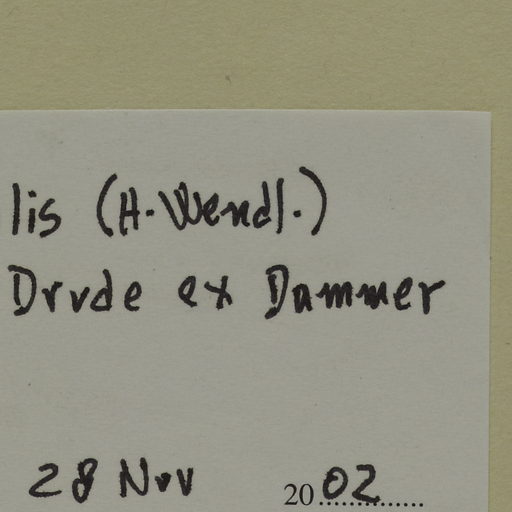 lis (H. Wendl.)
Drude ex Dammer
28 Nov 2002